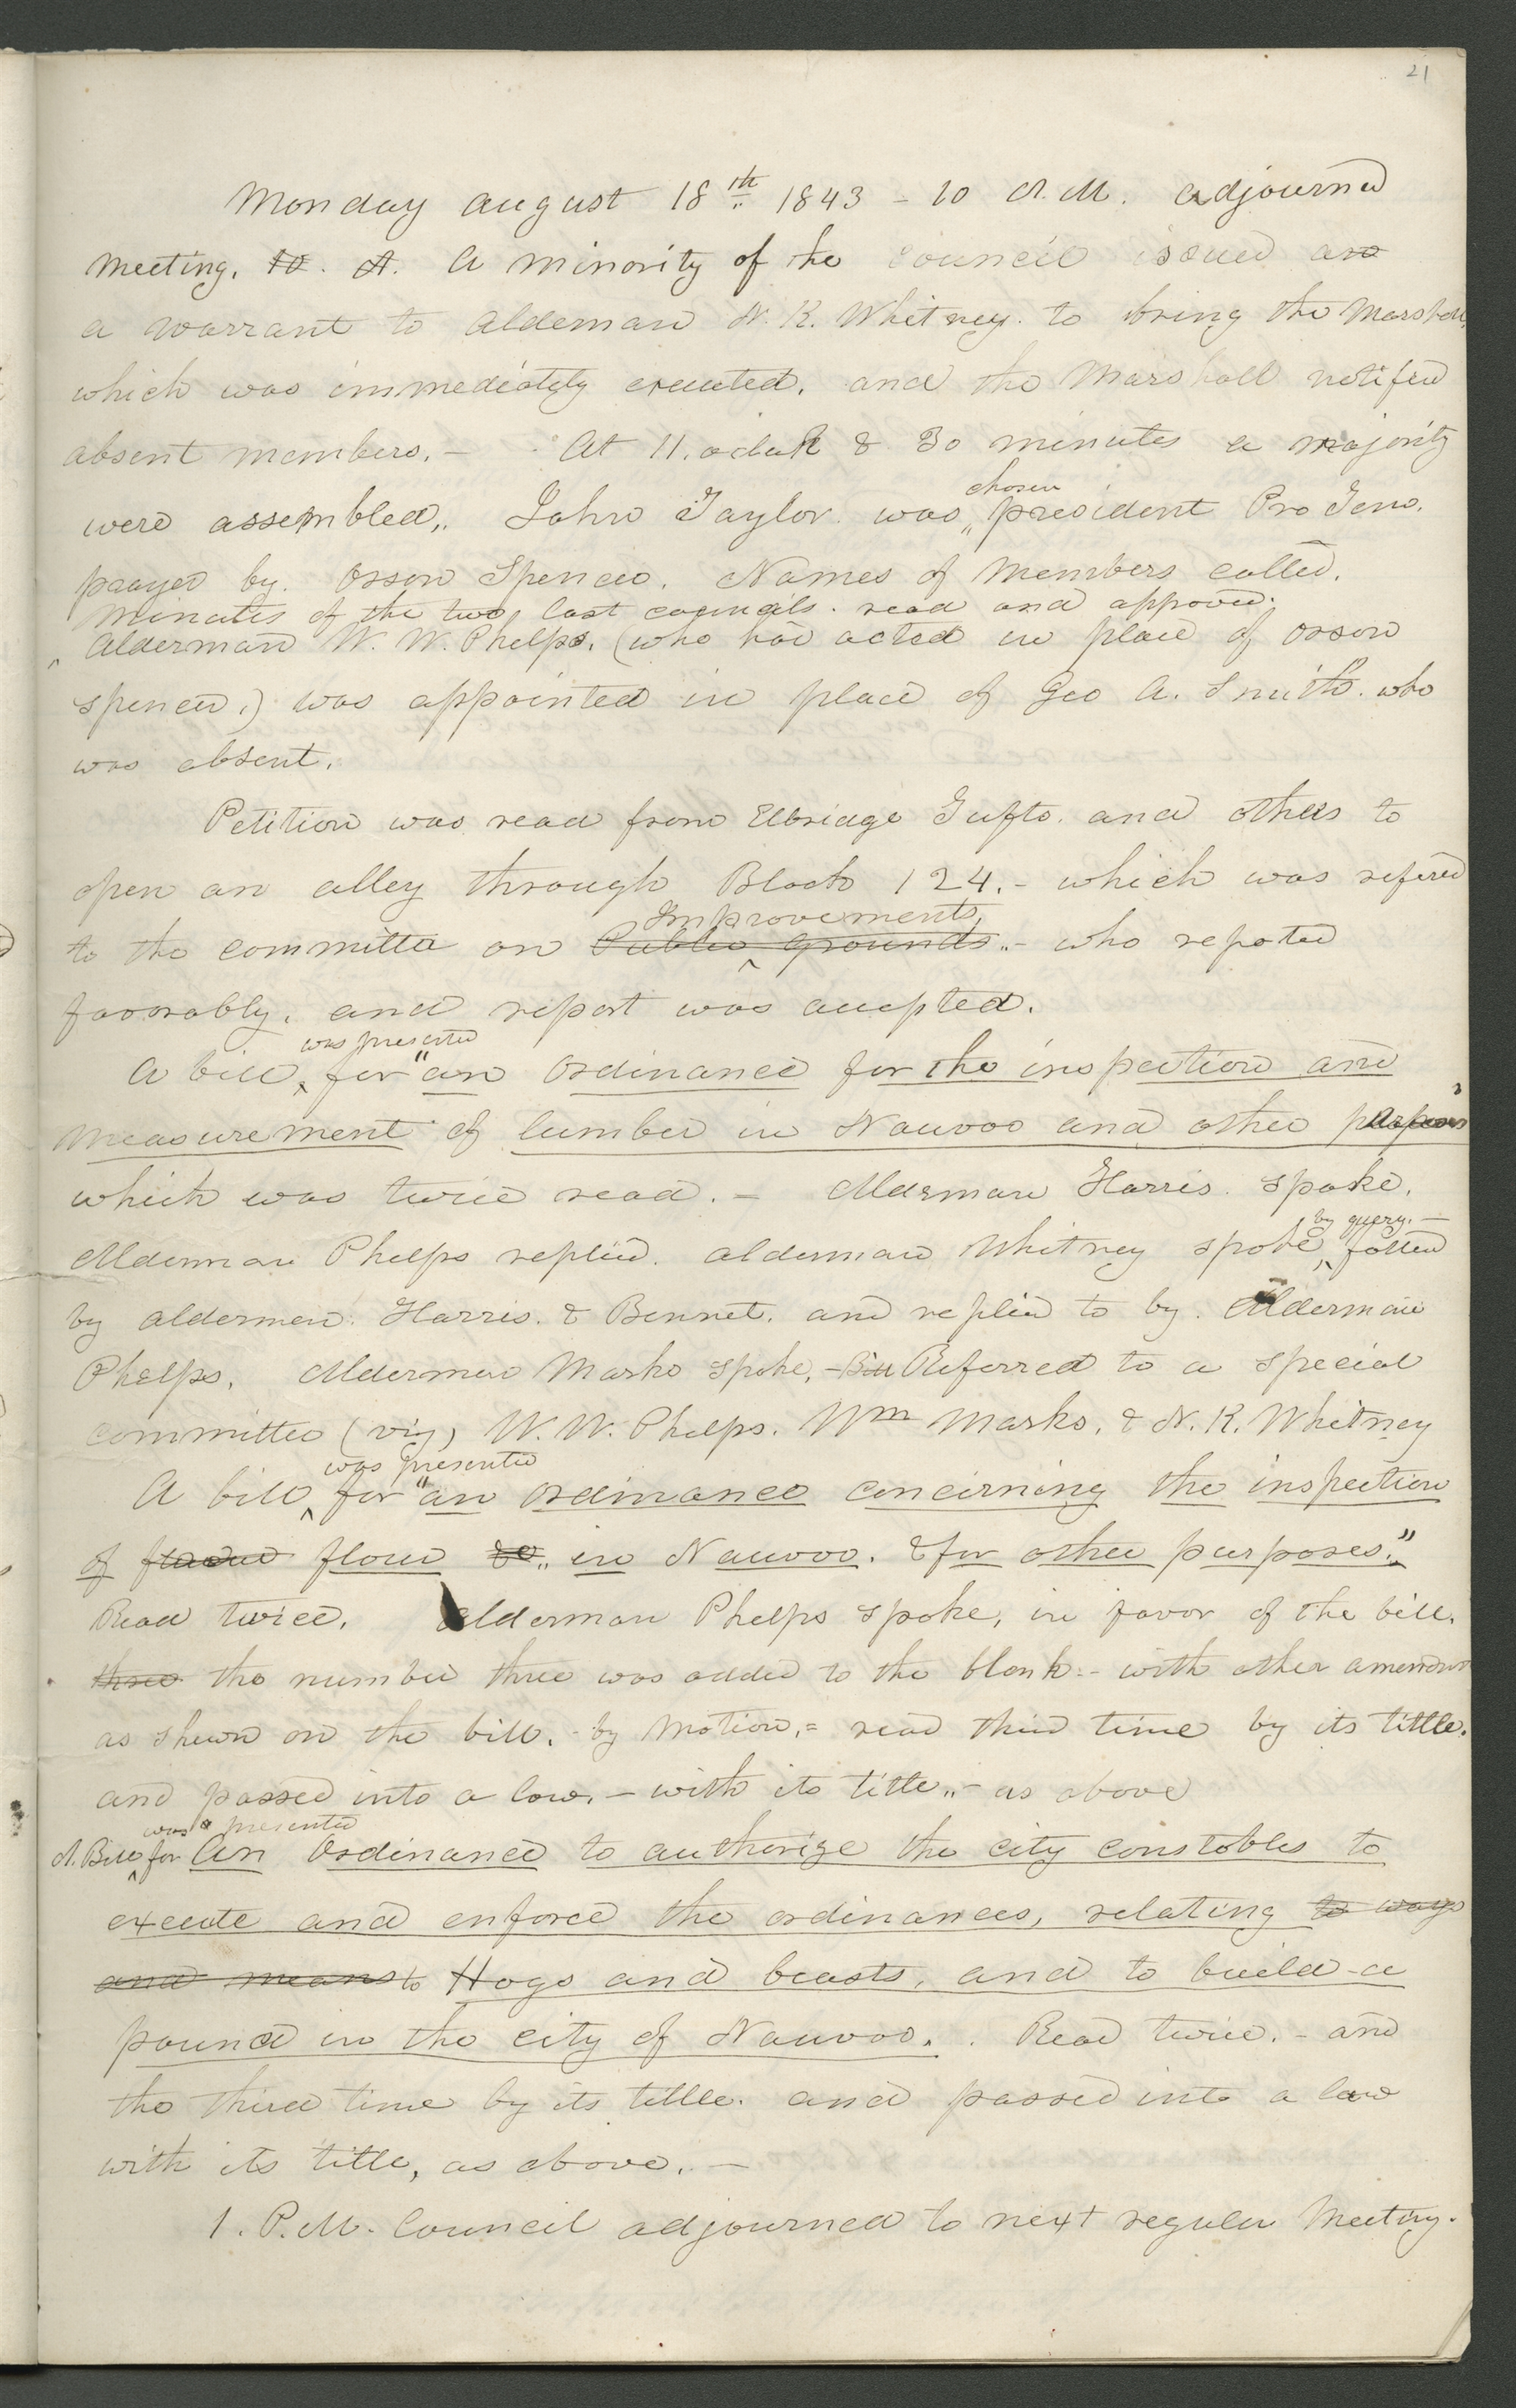 21
Monday august 18th 1843 - 10 A.M. adjourned
meeting. 10. A. A minority of the council issued an
a warrant to aldeman N. K. Whitney. to bring the Marshall,
which was immediately executed. and the Marshall notified
absent members. - At 11. oclock & 30 minutes a majority
chosen
were assembled,. John Taylor was president Pro Tem.
prayer by. Orson Spencer. Names of members called.
minutes of the two last councils. read and approved.
Alderman W. W. Phelps. (who had acted in place of Orson
Spencer.) was appointed in place of Geo A. Smith. who
was absent.
Petition was read from Elbridge Tufts. and others to
open an alley through Block 124. - which was refered
Improvements,
to the committee on Public grounds.. - who reported
favorably. and report was accepted.
was presented
A bill for "an ordinance for the inspection and
measurement of lumber in Nauvoo and other purposes"
which was twice read. - Alderman Harris. spoke.
by query. -
Alderman Phelps replied. alderman Whitney spoke, followed
by aldermen. Harris. & Bennet. and replied to by. Alderman
Phelps. Alderman Marks spoke, - Bill Referred to a special
committee (viz) W. W. Phelps. Wm Marks. & N. K. Whitney
was presented
A bill for "an ordinance concerning the inspection
of flour in Nauvoo. & for other purposes."
Read twice. Alderman Phelps spoke, in favor of the bill.
three the number three was added to the blank - with other amendmts
as shewn on the bill. - by motion, = read third time by its tittle.
and passed into a law. - with its title.. - as above
was presented
A. Bill for An Ordinance to authorize the city constables to
execute and enforce the ordinances, relating to ways
and means to Hogs and beasts, and to build a
pound in the city of Nauvoo. . Read twice. - and
the third time by its title. and passed into a law
with its title, as above. -
1. P.M. Council adjourned to next regular Meeting.